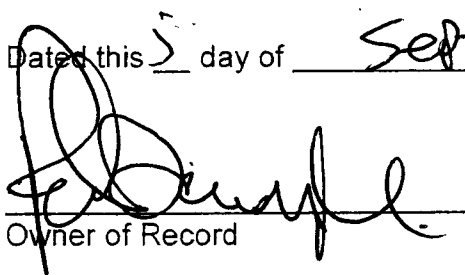 Dated this 5 day of Sep
Owner of Record